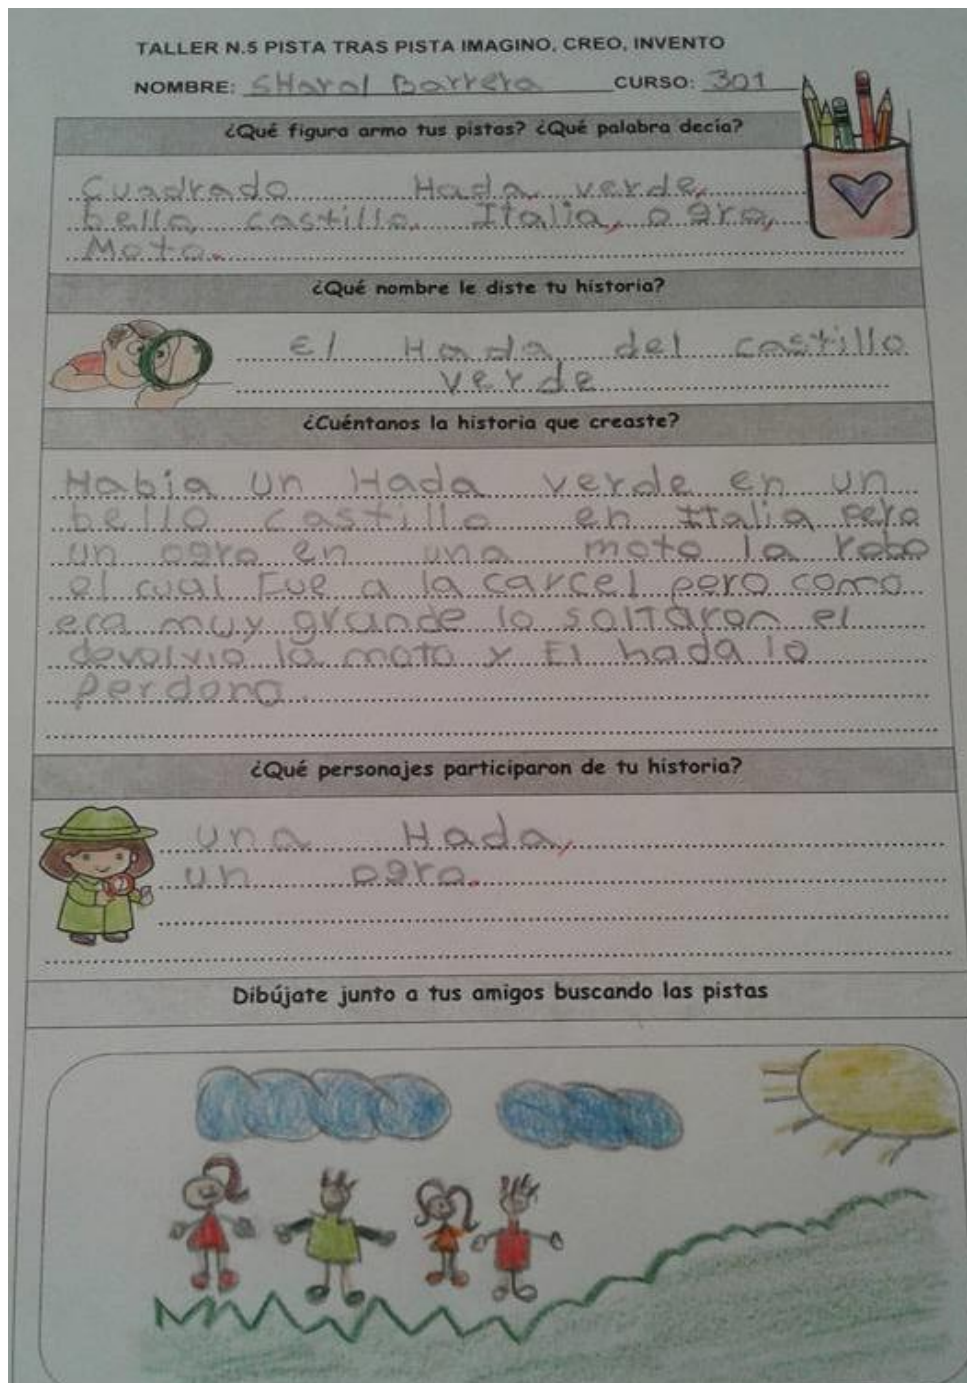 TALLER N.5 PISTA TRAS PISTA IMAGINO, CREO, INVENTO
NOMBRE: SHaral Barrera CURSO: 301
¿Qué figura armo tus pistas? ¿Qué palabra decía?
Cuadrado Hada, verde,
bello, castillo, Italia, ogro,
Moto.
¿Qué nombre le diste tu historia?
El Hada del castillo
verde
¿Cuéntanos la historia que creaste?
Habia un Hada verde en un
bello castillo en Italia pero
un ogro en una moto la robo
el cual Fue a la carcel pero como
era muy grande lo soltaron el
devolvio la moto y El hada lo
perdono.
¿Qué personajes participaron de tu historia?
una Hada,
un ogro.
Dibújate junto a tus amigos buscando las pistas